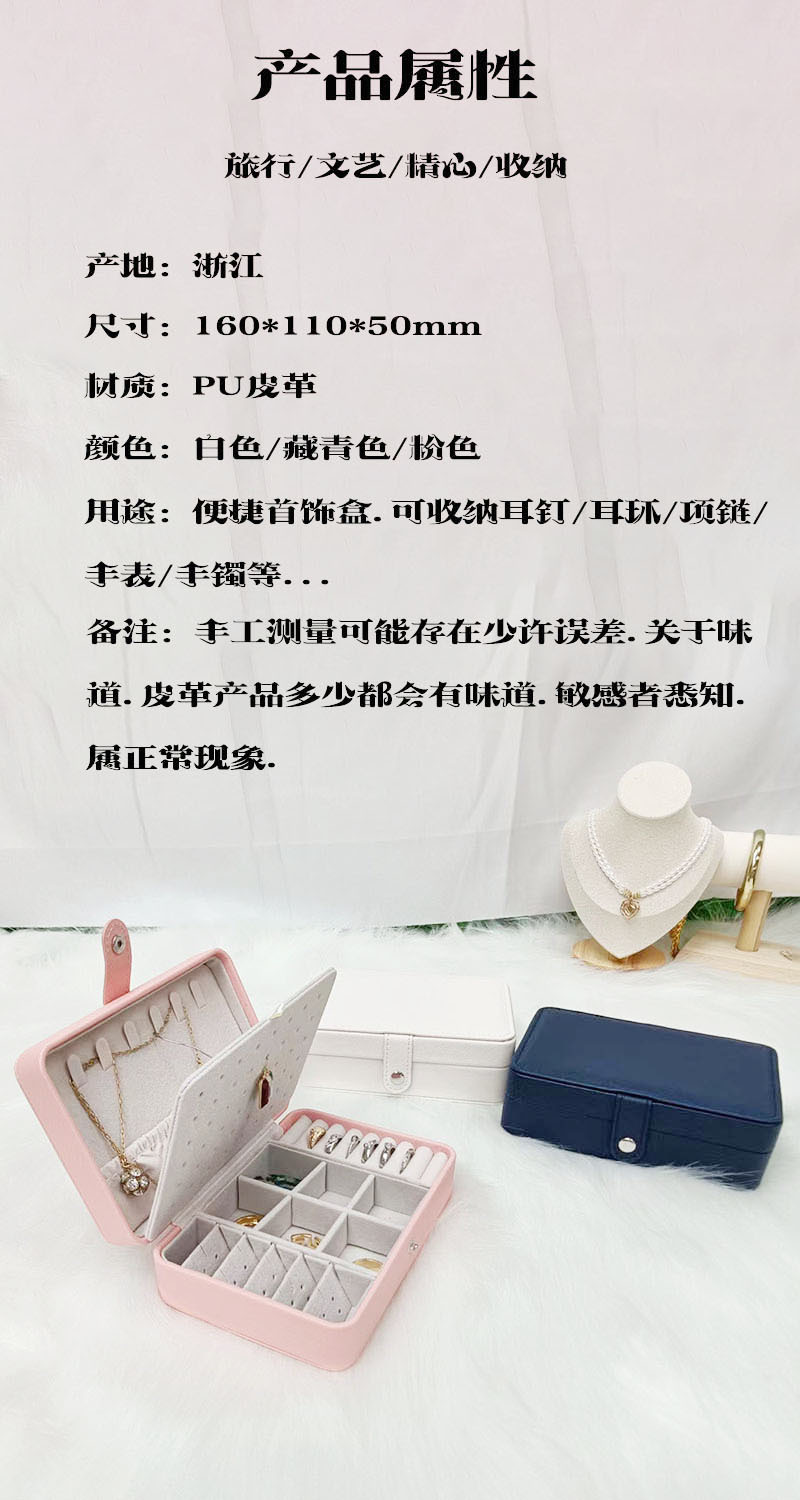 产品属性
旅行/文艺/精心/收纳
产地: 浙江
尺寸: 160*110*50mm
材质: PU皮革
颜色: 白色/藏青色/粉色
用途: 便捷首饰盒.可收纳耳钉/耳环/项链/
手表/手镯等...
备注: 手工测量可能存在少许误差.关于味
道.皮革产品多少都会有味道.敏感者悉知.
属正常现象.